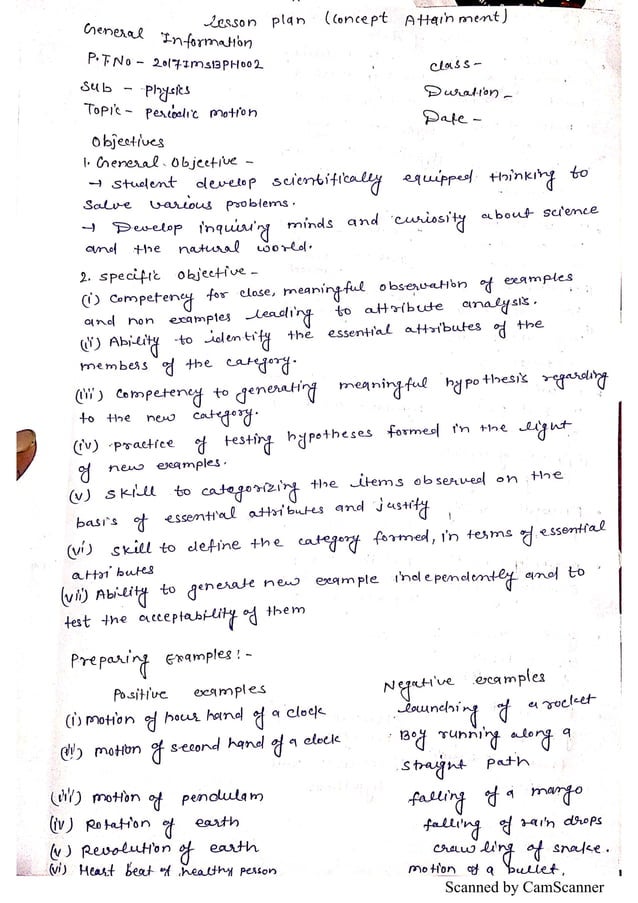 Lesson plan (Concept Attainment)
General Information
P.T No - 2017IMSBPH002
class -
Sub - Physics
Duration -
Topic - Periodic motion
Date -
Objectives
1. General Objective -
→ Student develop scientifically equipped thinking to
solve various problems.
→ Develop inquiring minds and curiosity about science
and the natural world.
2. specific objective -
(i) competency for close, meaningful observation of examples
and non examples leading to attribute analysis.
(ii) Ability to identify the essential attributes of the
members of the category.
(iii) competency to generating meaningful hypothesis regarding
to the new category.
(iv) practice of testing hypotheses formed in the light
of new examples.
(v) skill to categorizing the items observed on the
basis of essential attributes and justify
(vi) skill to define the category formed, in terms of essential
attributes
(vii) Ability to generate new example independently and to
test the acceptability of them
Preparing Examples :-
Positive examples
Negative examples
(i) motion of hour hand of a clock
launching of a rocket
(ii) motion of second hand of a clock
Boy running along a
straight path
(iii) motion of pendulam
falling of a mango
(iv) Rotation of earth
falling of rain drops
(v) Revolution of earth
crawling of snake.
(vi) Heart beat of healthy person
motion of a bullet.
Scanned by CamScanner